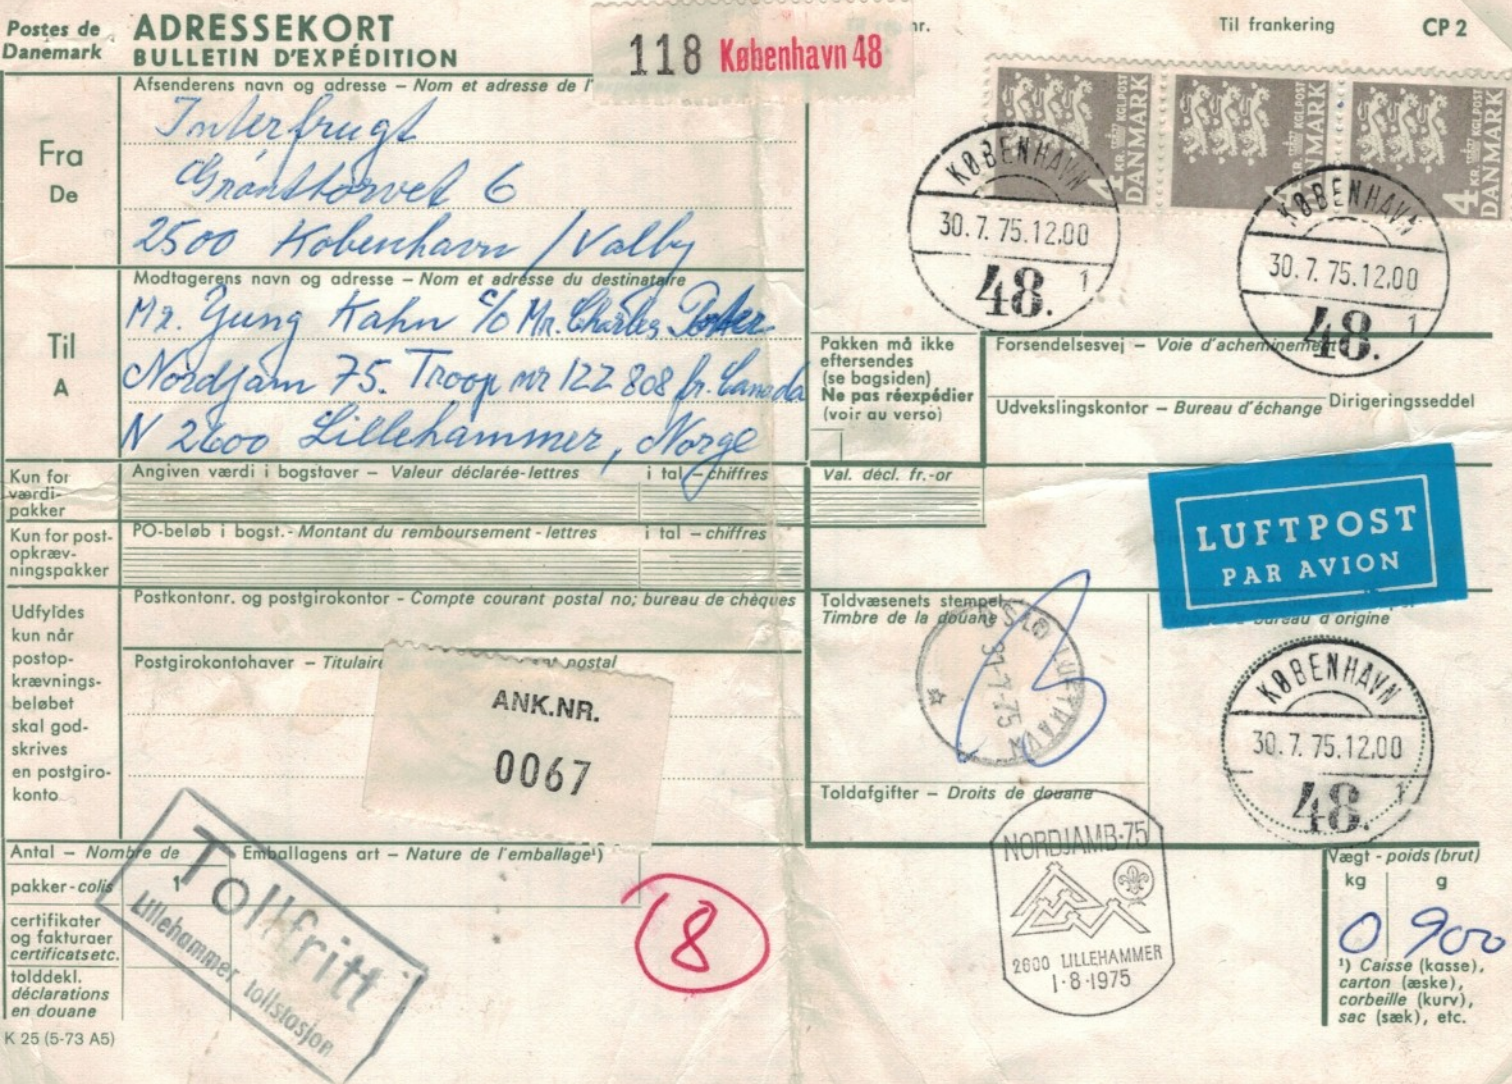 Postes de
Danemark
ADRESSEKORT
BULLETIN D'EXPÉDITION
118 København 48
nr.
Til frankering
CP 2
Afsenderens navn og adresse – Nom et adresse de l'
Fra
De
Interfrugt
Grønttorvet 6
2500 København / Valby
4 KR. KGL.POST DANMARK
4 KR. KGL.POST DANMARK
4 KR. KGL.POST DANMARK
KØBENHAVN
30.7.75.12.00
48. 1
KØBENHAVN
30.7.75.12.00
48. 1
Modtagerens navn og adresse – Nom et adrésse du destinataire
Til
A
Mr. Yung Kahn c/o Mr. Charles
Nordjam 75. Troop nr 122 808 fr. Canada
N 2600 Lillehammer, Norge
Pakken må ikke
eftersendes
(se bagsiden)
Ne pas réexpédier
(voir au verso)
Forsendelsesvej – Voie d'acheminement
Udvekslingskontor – Bureau d'échange
Dirigeringsseddel
Kun for
værdi-
pakker
Angiven værdi i bogstaver – Valeur déclarée-lettres
i tal – chiffres
Val. décl. fr.-or
Kun for post-
opkræv-
ningspakker
PO-beløb i bogst.- Montant du remboursement - lettres
i tal – chiffres
LUFTPOST
PAR AVION
Udfyldes
kun når
postop-
krævnings-
beløbet
skal god-
skrives
en postgiro-
konto
Postkontonr. og postgirokontor - Compte courant postal no; bureau de chèques
Postgirokontohaver – Titulaire
nt postal
ANK.NR.
0067
Toldvæsenets stempel
Timbre de la douane
OSLO LUFTHAVN
31-7-75
bureau d'origine
KØBENHAVN
30.7.75.12.00
48. 1
Toldafgifter – Droits de douane
NORDJAMB-75
2600 LILLEHAMMER
1-8-1975
Antal – Nombre de
pakker-colis
1
Emballagens art – Nature de l'emballage¹)
certifikater
og fakturaer
certificatsetc.
tolddekl.
déclarations
en douane
Tollfritt
Lillehammer tollstasjon
8
Vægt - poids (brut)
kg
g
0 900
¹) Caisse (kasse),
carton (æske),
corbeille (kurv),
sac (sæk), etc.
K 25 (5-73 A5)